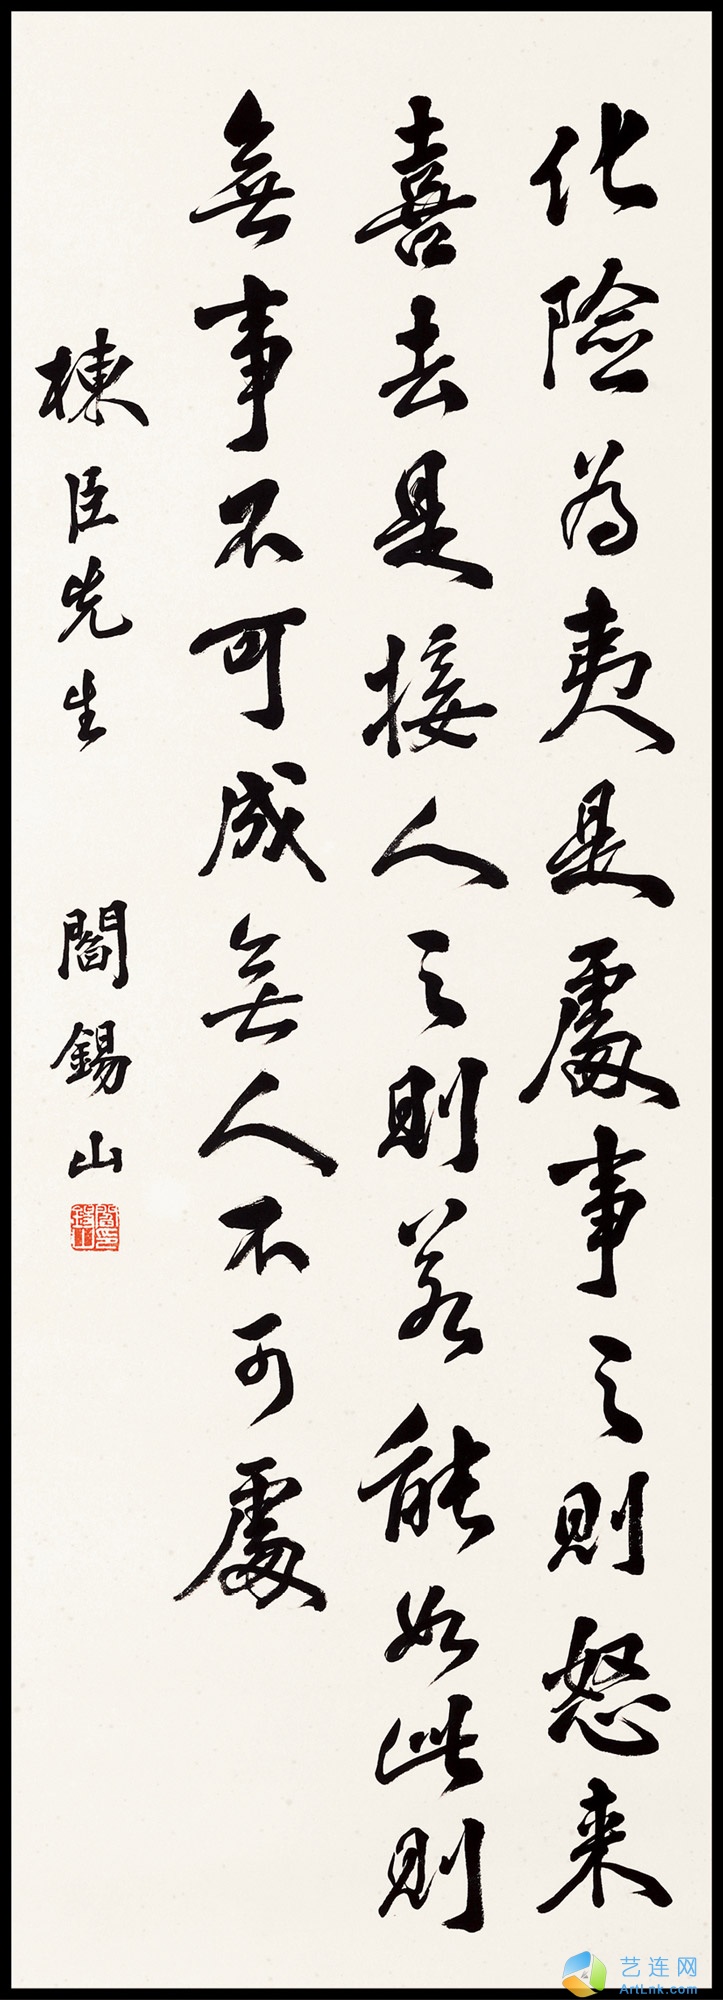 化險为夷是處事之則怒来
喜去是接人之則若能如此則
無事不可成無人不可處
棟臣先生 閻錫山
閻錫山印
艺连网
ArtLnk.com